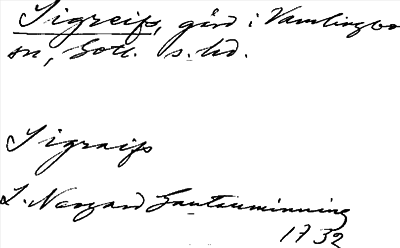 Sigreifs, gård i Vamlingbo
sn, Gotl. s. hd.
Sigraifs
L. Neogard Gautauminning
1732